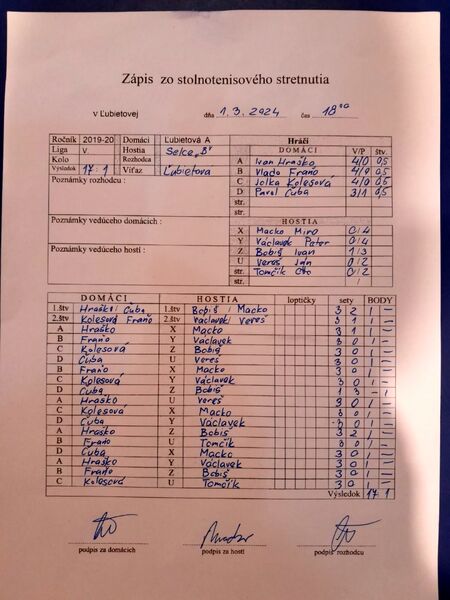 Zápis zo stolnotenisového stretnutia
v Ľubietovej dňa 1.3.2024 čas 18 00
Ročník 2019-20 Domáci Ľubietová A
Liga V Hostia Selce "B"
Kolo Rozhodca
Výsledok 17:1 Víťaz Ľubietová
Poznámky rozhodcu :
Poznámky vedúceho domácich :
Poznámky vedúceho hostí :
Hráči
DOMÁCI V/P štv.
A Ivan Hraško 4/0 0,5
B Vlado Fraňo 4/0 0,5
C Jolka Kolesová 4/0 0,5
D Pavol Čuba 3/1 0,5
str.
str.
HOSTIA
X Macko Miro 0/4
Y Václavek Peter 0/4
Z Bobiš Ivan 1/3
U Vereš Ján 0/2
str. Tomčík Oto 0/2
str.
DOMÁCI HOSTIA loptičky sety BODY
1.štv Hraško/ Čuba 1.štv Bobiš / Macko 3 2 1 –
2.štv Kolesová Fraňo 2.štv Václavek/ Vereš 3 1 1 –
A Hraško X Macko 3 1 1 –
B Fraňo Y Václavek 3 0 1 –
C Kolesová Z Bobiš 3 0 1 –
D Čuba U Vereš 3 0 1 –
B Fraňo X Macko 3 0 1 –
C Kolesová Y Václavek 3 0 1 –
D Čuba Z Bobiš 1 3 – 1
A Hraško U Vereš 3 0 1 –
C Kolesová X Macko 3 0 1 –
D Čuba Y Václavek 3 0 1 –
A Hraško Z Bobiš 3 2 1 –
B Fraňo U Tomčík 3 0 1 –
D Čuba X Macko 3 0 1 –
A Hraško Y Václavek 3 0 1 –
B Fraňo Z Bobiš 3 0 1 –
C Kolesová U Tomčík 3 0 1 –
Výsledok 17 1
podpis za domácich podpis za hostí podpis rozhodcu